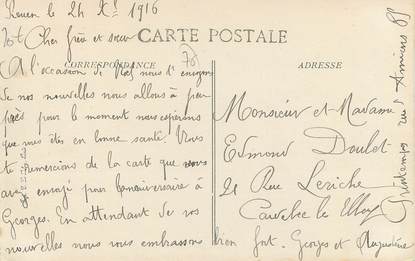 Rouen le 24 Xbre 1916
CARTE POSTALE
Cher frère et sœur
CORRESPONDANCE
ADRESSE
A l'occasion de Noël nous t'envoyons
de nos nouvelles nous allons à peu
près pour le moment nous espérons
que vous êtes en bonne santé. Nous
te remercions de la carte que vous
avez envoyé pour l'anniversaire à
Georges. En attendant de vos
nouvelles nous vous embrassons
bien fort. Georges et Augustine
Monsieur et Madame
Edmond Doulet
21 Rue Leriche
Caudebec les Elbeuf
rue d'Amiens 58